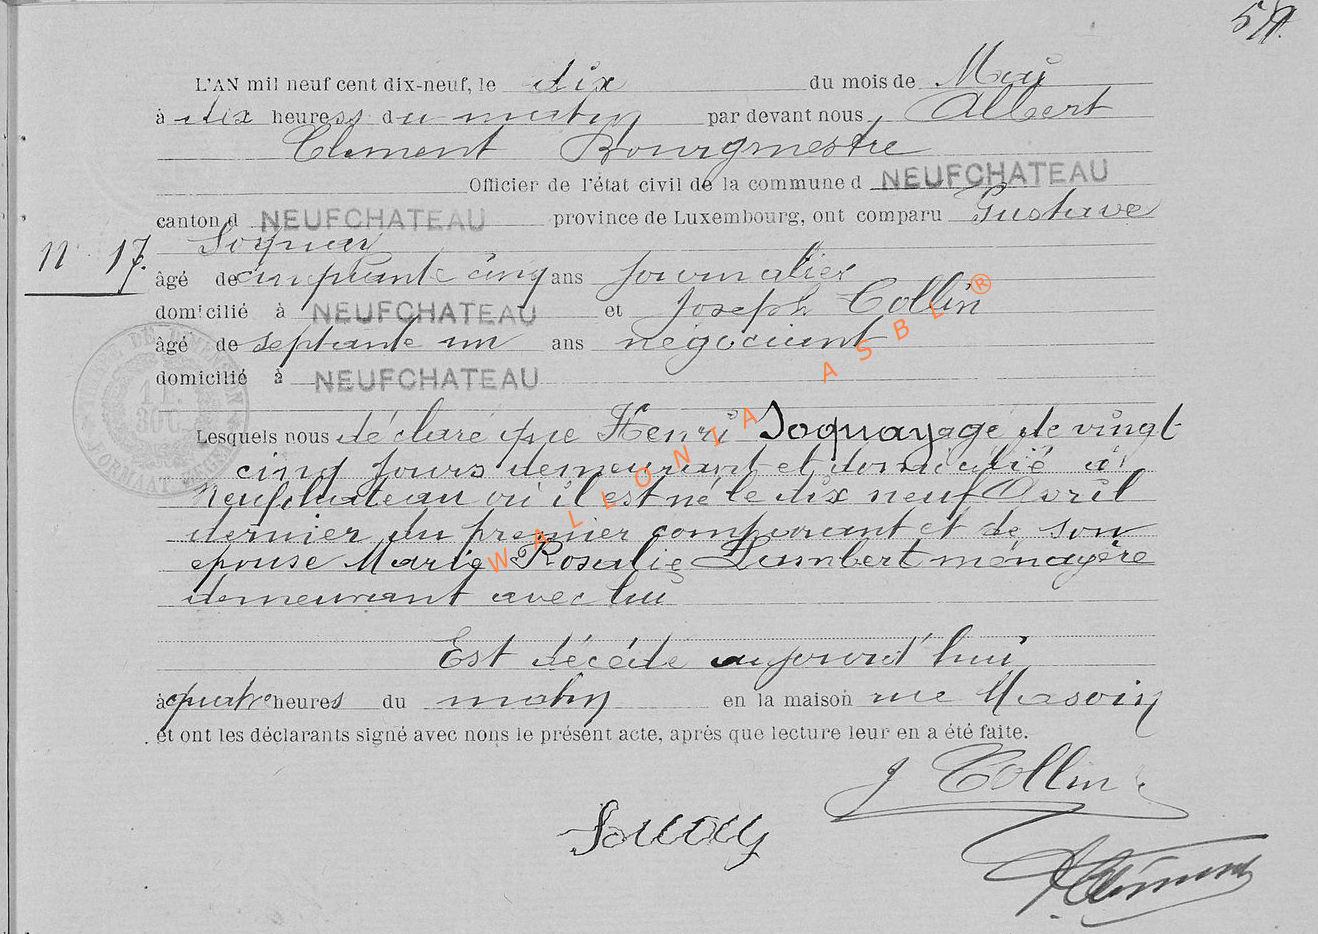 L'AN mil neuf cent dix-neuf, le dix du mois de Maÿ
à dix heures du matin par devant nous, Albert
Clement Bourgmestre
Officier de l'état civil de la commune d NEUFCHATEAU
canton d NEUFCHATEAU province de Luxembourg, ont comparu Gustave
Soquay
N 17.
âgé de cinquante cinq ans journalier
domicilié à NEUFCHATEAU et Joseph Collin
âgé de septante un ans négociant
domicilié à NEUFCHATEAU
Lesquels nous déclaré que Henri Soquay agé de vingt
cinq jours demeurant et domicilié à
Neufchateau où il est né le dix neuf Avril
dernier du premier comparant et de son
epouse Marie Rosalie Lambert ménagère
demeurant avec lui
Est décédé aujourd'hui
à quatre heures du matin en la maison rue
et ont les déclarants signé avec nous le présent acte, après que lecture leur en a été faite.
J Collin
WALLONIA ASBL ®